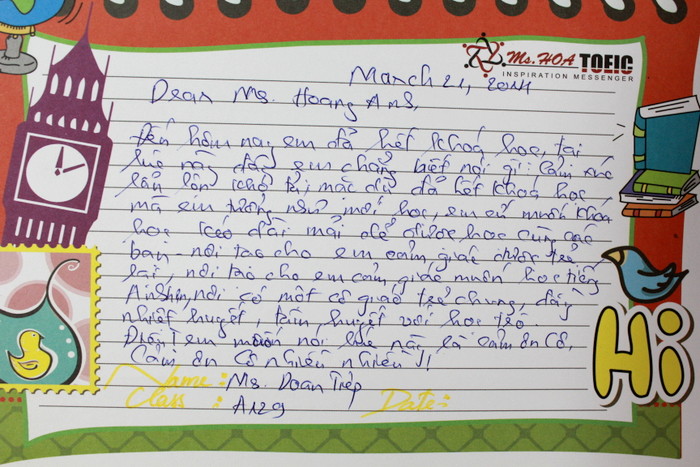 Ms. HOA TOEIC
INSPIRATION MESSENGER
March 21, 2014
Dear Ms. Hoang Anh,
Đến hôm nay em đã hết khoá học, tại
lúc này đây em chẳng biết nói gì. Cảm xúc
lẫn lộn khó tả, mặc dù đã hết khoá học,
mà em tưởng như mới học, em cứ muốn khoá
học kéo dài mãi để được học cùng các
bạn - nơi tạo cho em cảm giác được trẻ
lại, nơi tạo cho em cảm giác muốn học tiếng
Anh, nơi có một cô giáo trẻ chung, đầy
nhiệt huyết, tâm huyết với học trò.
Điều em muốn nói lúc này là cảm ơn Cô,
Cảm ơn Cô nhiều nhiều!!
Name: Ms. Doan Tiep
Class: A129 Date:
Hi